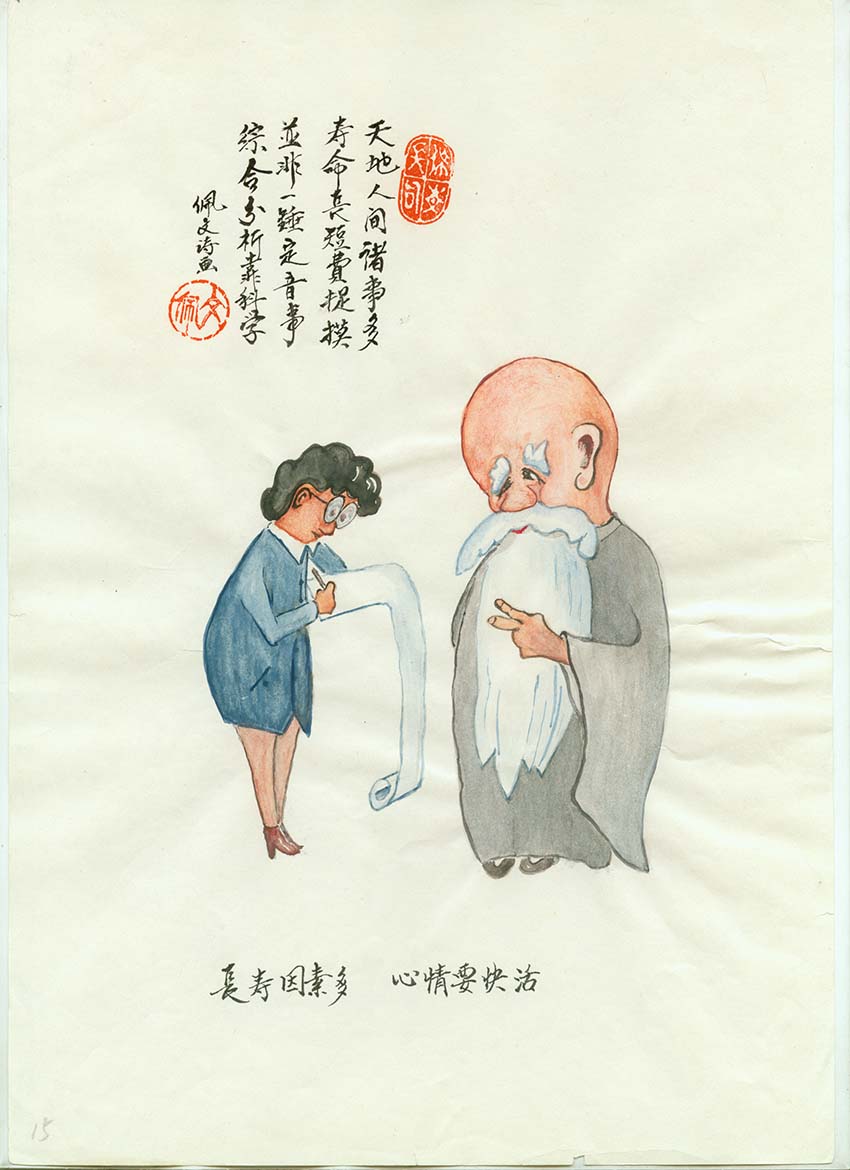 天地人间诸事多
寿命長短費捉摸
並非一錘定音事
综合分析靠科学
佩文诗画
佩文
長寿因素多 心情要快活
15